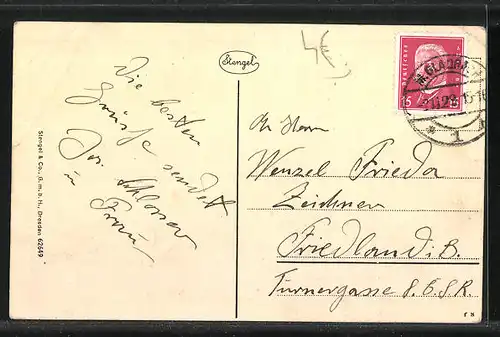 Stengel
Die besten
Grüsse sendet
Jos. Schlosser
u Frau
Stengel & Co., G.m.b.H., Dresden 62649
DEUTSCHES
15
M. GLADBACH
An Herrn
Wenzel Frieda
Zeichner
Friedland i. B.
Turnergasse 8. Č.S.R.